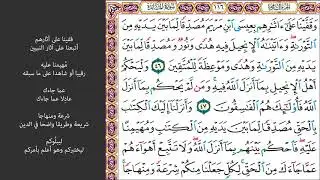 ١١٦
وَقَفَّيْنَا عَلَىٰٓ ءَاثَٰرِهِم بِعِيسَى ٱبْنِ مَرْيَمَ مُصَدِّقًا لِّمَا بَيْنَ يَدَيْهِ مِنَ
ٱلتَّوْرَىٰةِ وَءَاتَيْنَٰهُ ٱلْإِنجِيلَ فِيهِ هُدًى وَنُورٌ وَمُصَدِّقًا لِّمَا بَيْنَ
يَدَيْهِ مِنَ ٱلتَّوْرَىٰةِ وَهُدًى وَمَوْعِظَةً لِّلْمُتَّقِينَ ٤٦ وَلْيَحْكُمْ
أَهْلُ ٱلْإِنجِيلِ بِمَآ أَنزَلَ ٱللَّهُ فِيهِ وَمَن لَّمْ يَحْكُم بِمَآ أَنزَلَ
ٱللَّهُ فَأُو۟لَٰٓئِكَ هُمُ ٱلْفَٰسِقُونَ ٤٧ وَأَنزَلْنَآ إِلَيْكَ ٱلْكِتَٰبَ
بِٱلْحَقِّ مُصَدِّقًا لِّمَا بَيْنَ يَدَيْهِ مِنَ ٱلْكِتَٰبِ وَمُهَيْمِنًا
عَلَيْهِ فَٱحْكُم بَيْنَهُم بِمَآ أَنزَلَ ٱللَّهُ وَلَا تَتَّبِعْ أَهْوَآءَهُمْ
عَمَّا جَآءَكَ مِنَ ٱلْحَقِّ لِكُلٍّ جَعَلْنَا مِنكُمْ شِرْعَةً وَمِنْهَاجًا
قفينا على آثارهم
أتبعنا على آثار النبيين
مهيمنا عليه
رقيبا أو شاهدا على ما سبقه
عما جاءك
عادلا عما جاءك
شرعة ومنهاجا
شريعة وطريقا واضحا في الدين
ليبلوكم
ليختبركم وهو أعلم بأمركم